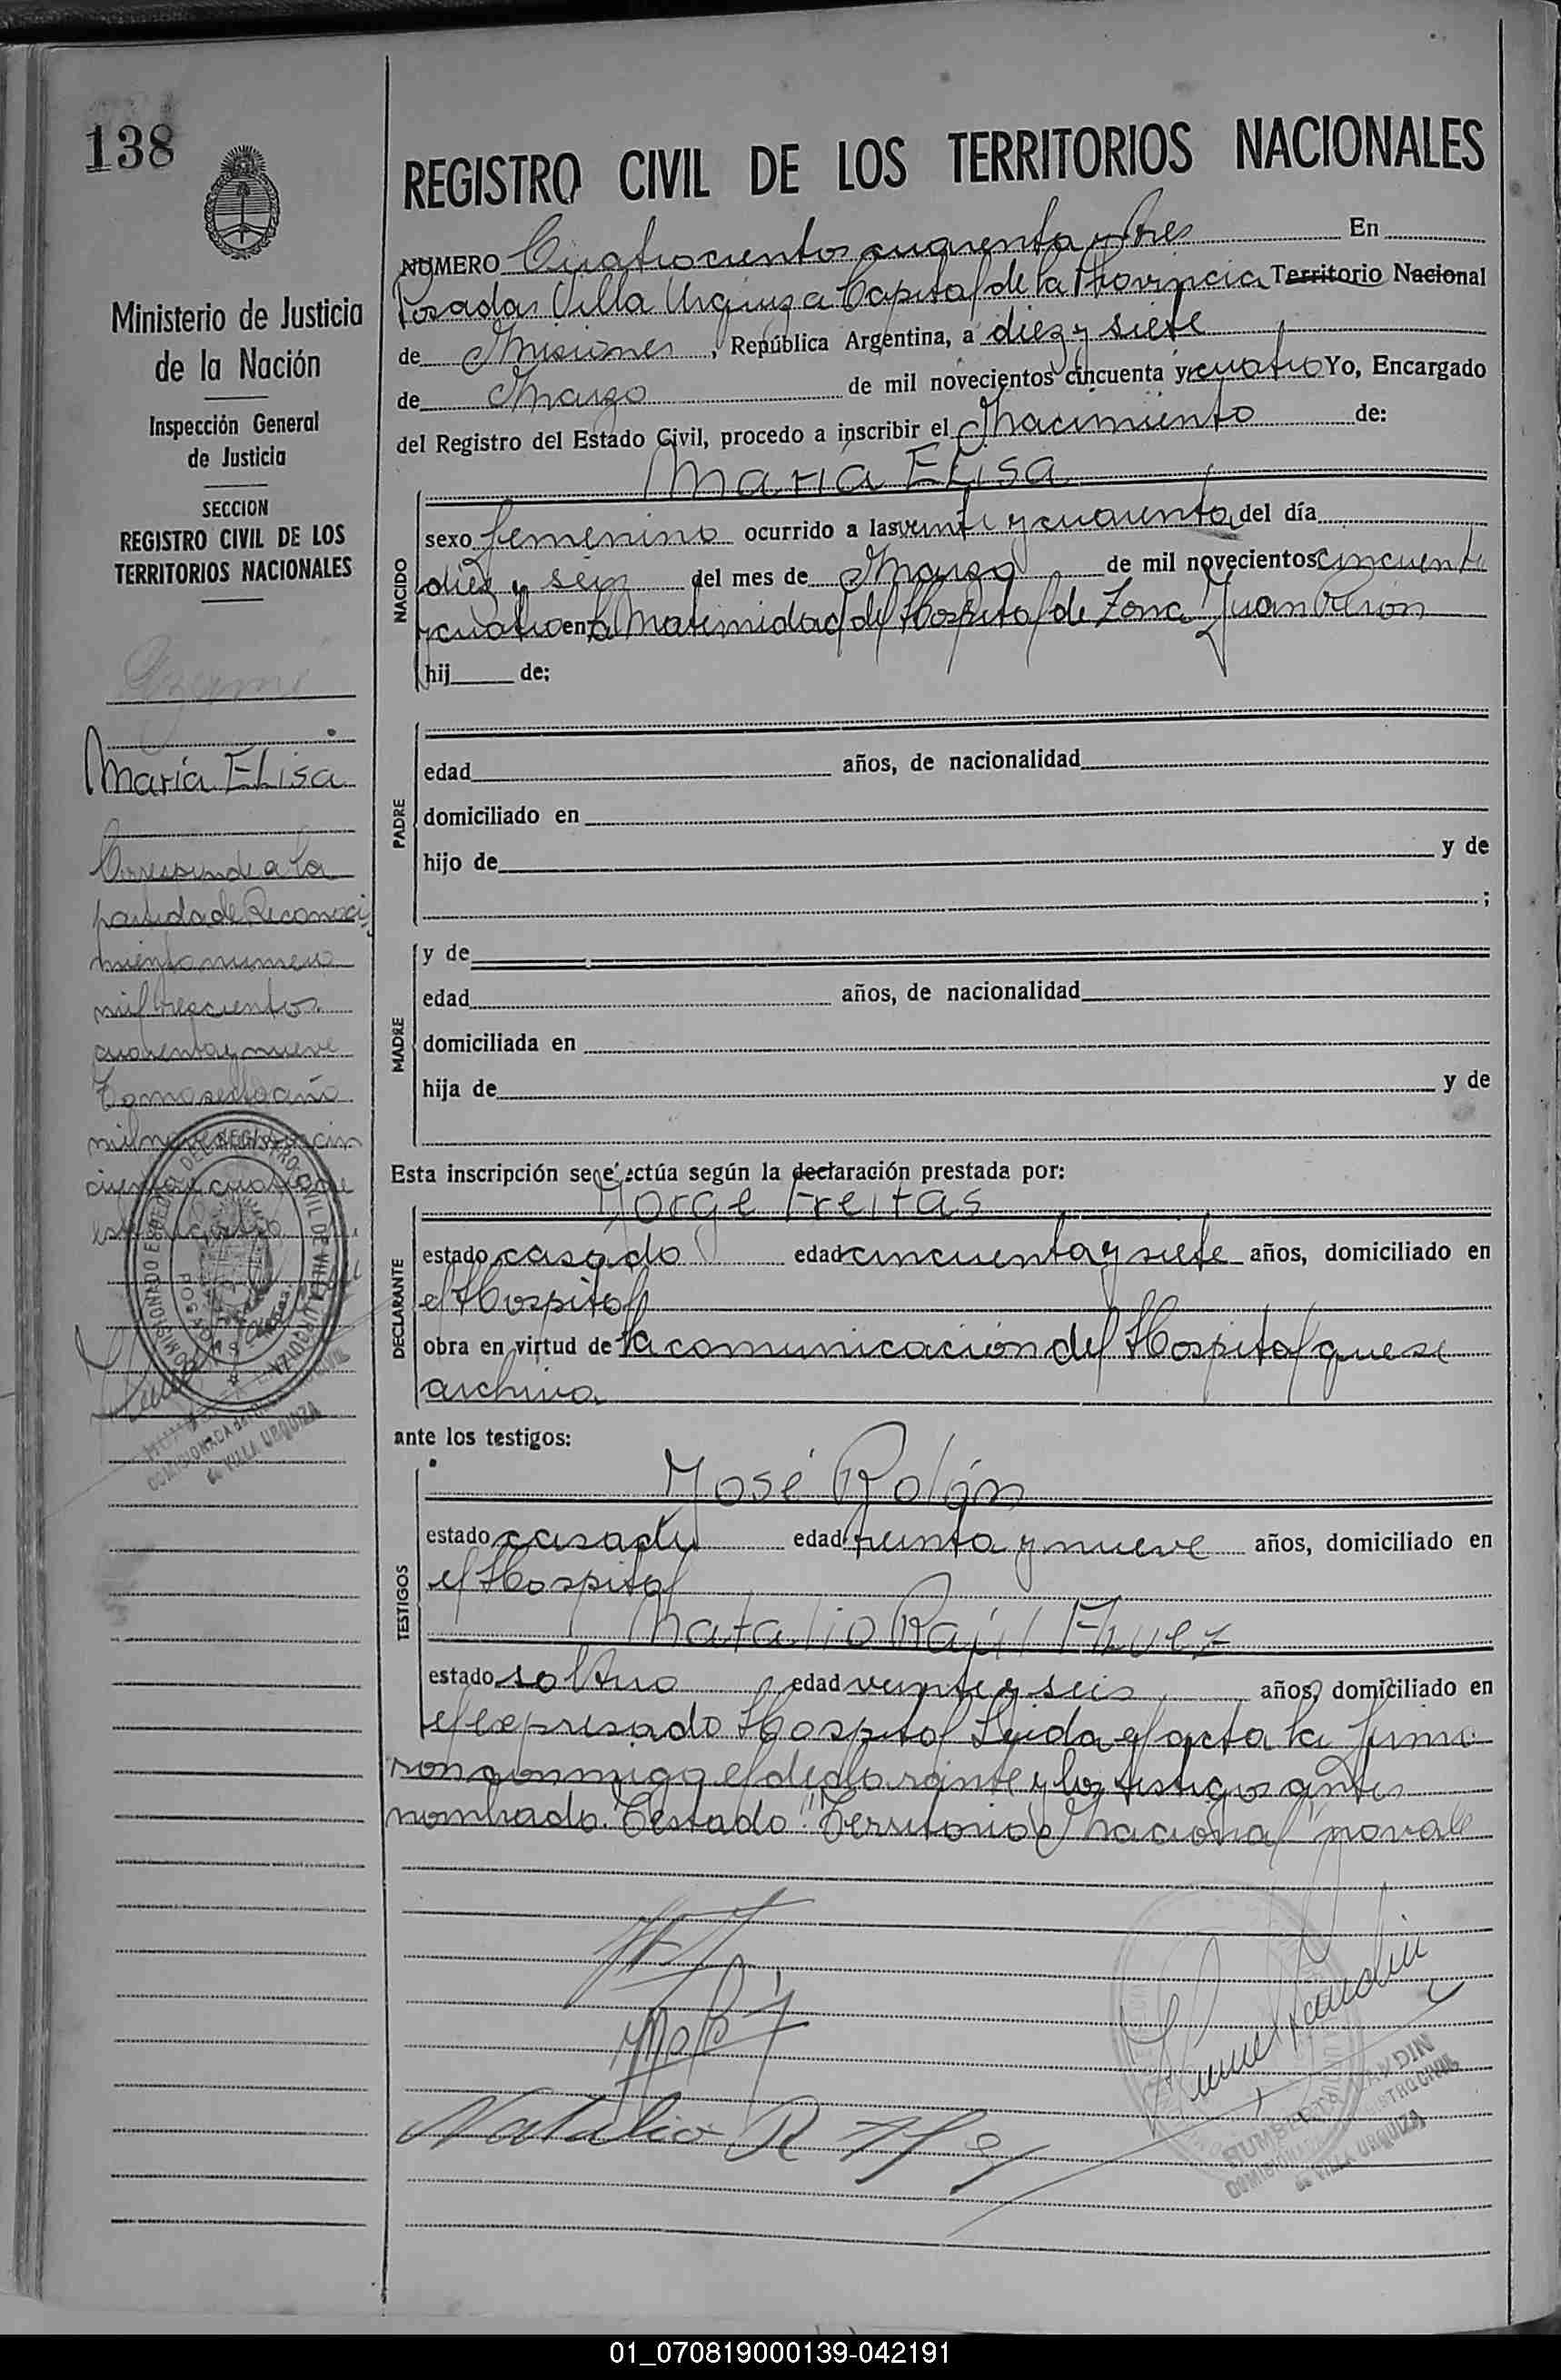 138
Ministerio de Justicia
de la Nación
Inspección General
de Justicia
SECCION
REGISTRO CIVIL DE LOS
TERRITORIOS NACIONALES
María Elisa
Corresponde a la
partida de Reconoci
miento numero
mil trescientos
cuarenta y nueve
Tomo sexto año
mil novecientos cin
cuenta y cuatro de
REGISTRO CIVIL DE LOS TERRITORIOS NACIONALES
NUMERO Cuatrocientos cuarenta y tres En
Posadas Villa Urquiza Capital de la Provincia Territorio Nacional
de Misiones, República Argentina, a diez y siete
de Marzo de mil novecientos cincuenta y cuatro Yo, Encargado
del Registro del Estado Civil, procedo a inscribir el Nacimiento de:
María Elisa
NACIDO
sexo femenino ocurrido a las veinte y cuarenta del día
diez y seis del mes de Marzo de mil novecientos cincuenta
y cuatro en la Maternidad del Hospital de Zona Juan Perón
hij de:
PADRE
edad años, de nacionalidad
domiciliado en
hijo de y de
;
MADRE
y de
edad años, de nacionalidad
domiciliada en
hija de y de
Esta inscripción se efectúa según la declaración prestada por:
Jorge Freitas
DECLARANTE
estado casado edad cincuenta y siete años, domiciliado en
el Hospital
obra en virtud de la comunicación del Hospital que se
archiva
ante los testigos:
José Rolón
TESTIGOS
estado casado edad treinta y nueve años, domiciliado en
el Hospital
Natalio Raúl
estado soltero edad veinte y seis años, domiciliado en
el expresado Hospital Leida el acta la firma
ron conmigo el declarante y los testigos antes
nombrado. Testado: "Territorio Nacional" no vale
Natalio R
DE VILLA URQUIZA
01_070819000139-042191